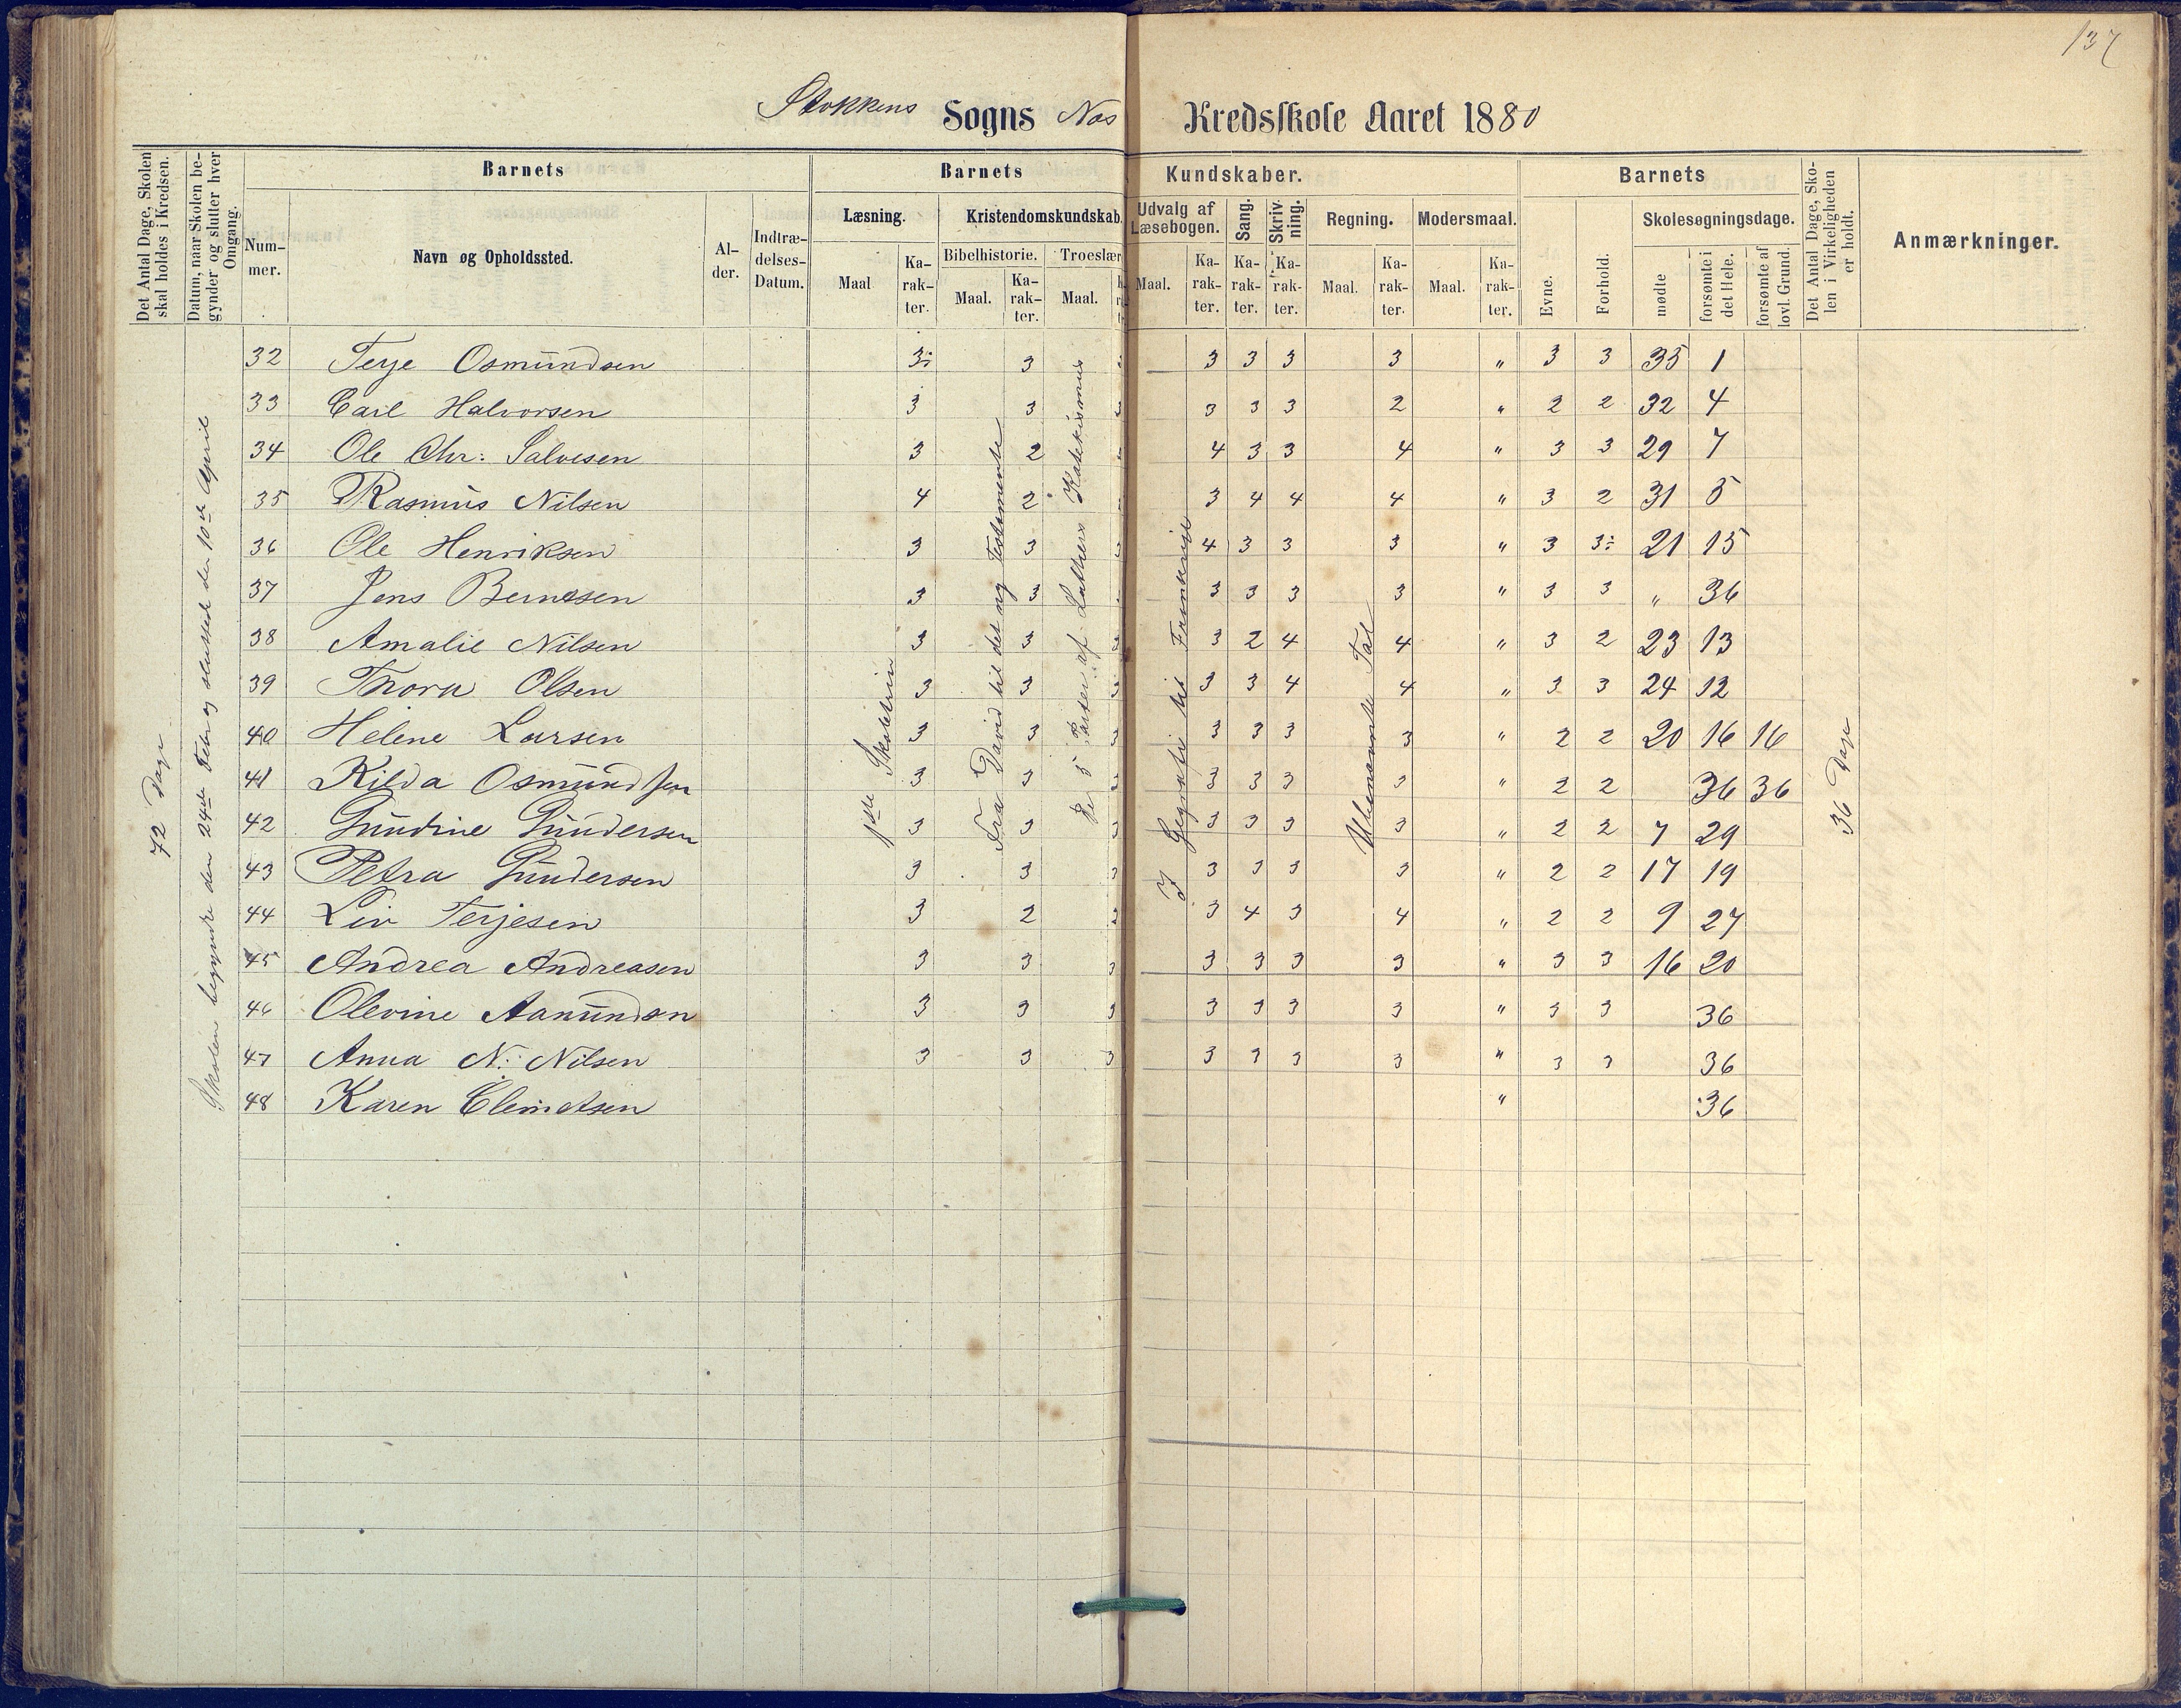 137
Stokkens Sogns Næs Kredsskole Aaret 1880
Det Antal Dage, Skolen skal holdes i Kredsen.
Datum, naar Skolen begynder og slutter hver Omgang.
Barnets
Nummer.
Navn og Opholdssted.
Alder.
Indtrædelses-Datum.
Barnets Kundskaber.
Læsning.
Maal
Karakter.
Kristendomskundskab.
Bibelhistorie.
Maal.
Karakter.
Troeslær
Maal.
Udvalg af Læsebogen.
Maal.
Karakter.
Sang.
Karakter.
Skrivning.
Karakter.
Regning.
Maal.
Karakter.
Modersmaal.
Maal.
Karakter.
Barnets
Evne.
Forhold.
Skolesøgningsdage.
mødte
forsømte i det Hele.
forsømte af lovl. Grund.
Det Antal Dage, Skolen i Virkeligheden er holdt.
Anmærkninger.
72 Dage
Skolen begyndte den 24de Febr og sluttet den 10de April
1ste Skoletrin
Fra David til det ny Testamente
De 5 Parter af Luthers Katekismus
I Geografi til Frankrige
Ubenævnte Tal
36 Dage
32 Terje Osmundsen 3÷ 3 3 3 3 3 " 3 3 35 1
33 Carl Halvorsen 3 3 3 3 3 2 " 2 2 32 4
34 Ole Chr: Salvesen 3 2 4 3 3 4 " 3 3 29 7
35 Rasmus Nilsen 4 2 3 4 4 4 " 3 2 31 5
36 Ole Henriksen 3 3 4 3 3 3 " 3 3÷ 21 15
37 Jens Bernesen 3 3 3 3 3 3 " 3 3 " 36
38 Amalie Nilsen 3 3 3 2 4 4 " 3 2 23 13
39 Thora Olsen 3 3 3 3 4 4 " 3 3 24 12
40 Helene Larsen 3 3 3 3 3 3 " 2 2 20 16 16
41 Kilda Osmundsen 3 3 3 3 3 3 " 2 2 36 36
42 Gundine Gundersen 3 3 3 3 3 3 " 2 2 7 29
43 Petra Gundersen 3 3 3 3 3 3 " 2 2 17 19
44 Liv Terjesen 3 2 3 4 3 4 " 2 2 9 27
45 Andrea Andreasen 3 3 3 3 3 3 " 3 3 16 20
46 Olevine Aanundsn 3 3 3 3 3 3 " 3 3 36
47 Anna N. Nilsen 3 3 3 3 3 3 " 3 3 36
48 Karen Clemetsen " 36